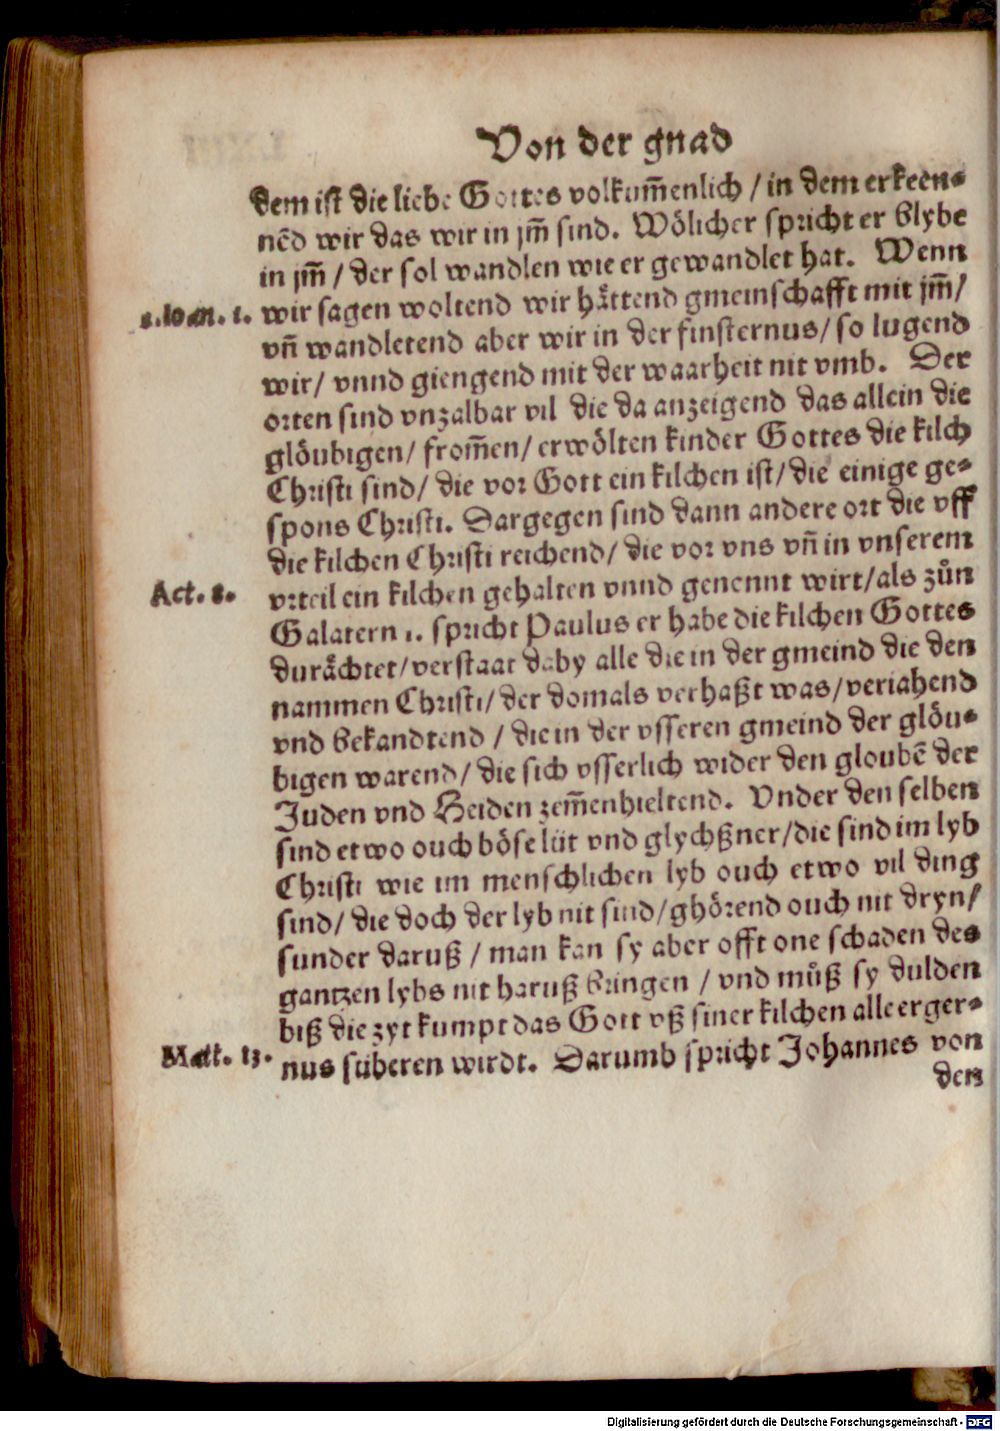 Von der gnad
dem ist die liebe Gottes volkum̃enlich / in dem erkeen⸗
nẽd wir das wir in jm̃ sind. Wölicher spricht er blybe
in jm̃ / der sol wandlen wie er gewandlet hat. Wenn
1. Ioan. 1. wir sagen woltend wir hättend gmeinschafft mit jm̃/
vñ wandletend aber wir in der finsternus/ so lugend
wir/ vnnd giengend mit der waarheit nit vmb. Der
orten sind vnzalbar vil die da anzeigend das allein die
glöubigen/ from̃en/ erwölten kinder Gottes die kilch
Christi sind/ die vor Gott ein kilchen ist/ die einige ge⸗
spons Christi. Dargegen sind dann andere ort die vff
die kilchen Christi reichend/ die vor vns vñ in vnserem
Act. 8. vrteil ein kilchen gehalten vnnd genennt wirt/ als zůn
Galatern 1. spricht Paulus er habe die kilchen Gottes
durächtet/ verstaat daby alle die in der gmeind die den
nammen Christi/ der domals verhaßt was/ veriahend
vnd bekandtend / die in der vsseren gmeind der glöu⸗
bigen warend/ die sich vsserlich wider den gloubẽ der
Juden vnd Heiden zem̃enhieltend. Vnder den selben
sind etwo ouch böse lüt vnd glychßner/ die sind im lyb
Christi wie im menschlichen lyb ouch etwo vil ding
sind/ die doch der lyb nit sind/ ghörend ouch nit dryn/
sunder daruß / man kan sy aber offt one schaden des
gantzen lybs nit haruß bringen / vnd můß sy dulden
biß die zyt kumpt das Gott vß siner kilchen alle erger⸗
Matt. 13. nus süberen wirdt. Darumb spricht Johannes von
den
Digitalisierung gefördert durch die Deutsche Forschungsgemeinschaft - DFG